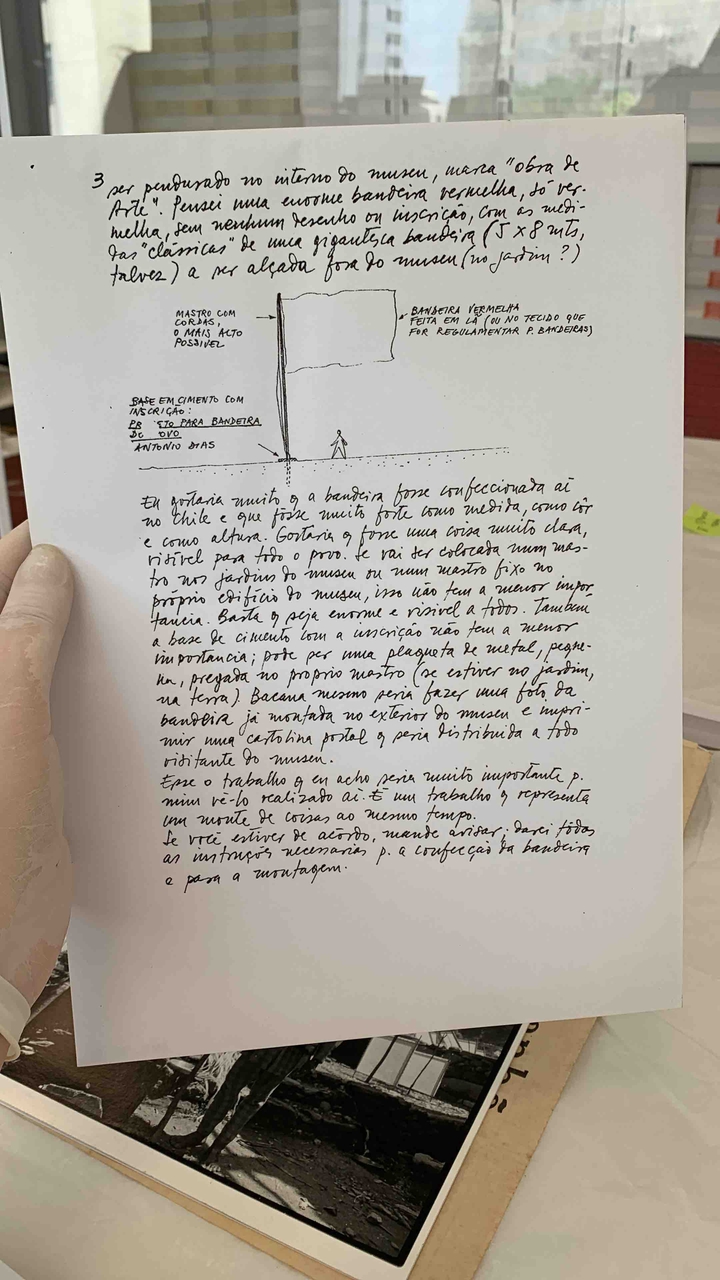 3
ser pendurado no interno do museu, marca "obra de
Arte". Pensei uma enorme bandeira vermelha, só ver-
melha, sem nenhum desenho ou inscrição, com as medi-
das "clássicas" de uma gigantesca bandeira (5 x 8 mts,
talvez) a ser alçada fora do museu (no jardim?)
MASTRO COM
CORDAS,
O MAIS ALTO
POSSIVEL
BANDEIRA VERMELHA
FEITA EM LÃ (OU NO TECIDO QUE
FOR REGULAMENTAR P. BANDEIRAS)
BASE EM CIMENTO COM
INSCRIÇÃO:
PARA BANDEIRA
ANTONIO DIAS
Eu gostaria muito q a bandeira fosse confeccionada aí
no Chile e que fôsse muito forte como medida, como côr
e como altura. Gostaria q fosse uma coisa muito clara,
visível para todo o povo. Se vai ser colocada num mas-
tro nos jardins do museu ou num mastro fixo no
próprio edifício do museu, isso não tem a menor impor
tancia. Basta q seja enorme e visivel a todos. Também
a base de cimento com a inscrição não tem a menor
importancia; pode ser uma plaqueta de metal, peque-
na, pregada no proprio mastro (se estiver no jardim,
na terra). Bacana mesmo seria fazer uma foto da
bandeira já montada no exterior do museu e impri-
mir uma cartolina postal q seria distribuida a todo
visitante do museu.
Esse o trabalho q eu acho seria muito importante p.
mim vê-lo realizado aí. É um trabalho q representa
um monte de coisas ao mesmo tempo.
Se você estiver de acôrdo, mande avisar; darei tôdas
as instruções necessarias p. a confecção da bandeira
e para a montagem.